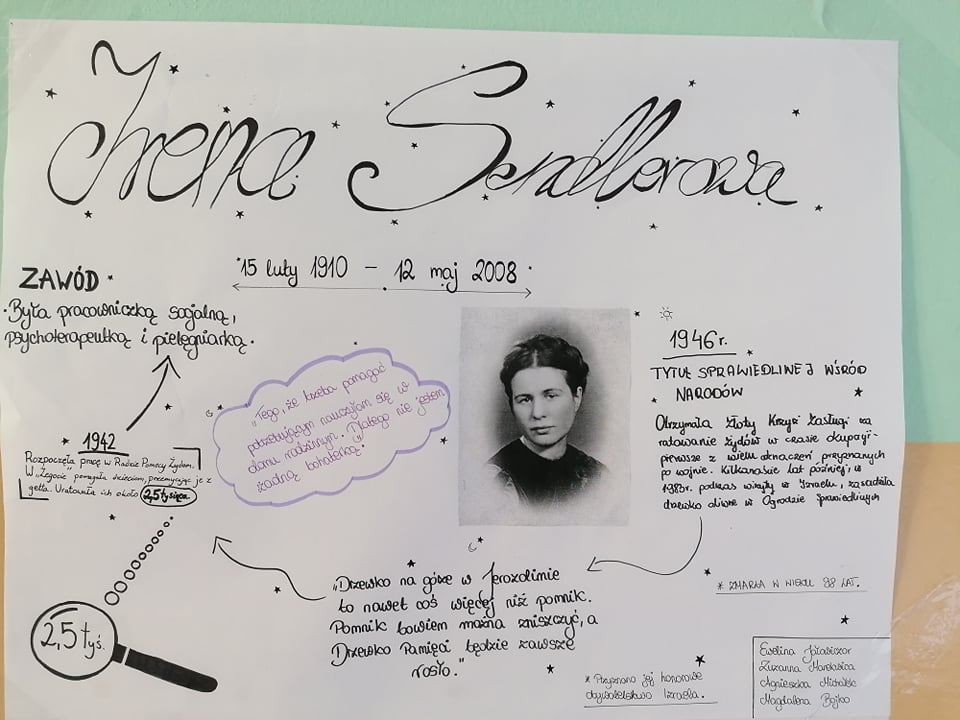 Irena Sendlerowa
15 luty 1910 – 12 maj 2008
ZAWÓD
· Była pracowniczką socjalną,
psychoterapeutką i pielęgniarką.
1942
Rozpoczęła pracę w Radzie Pomocy Żydom.
W „Żegocie pomagała dzieciom, przemycając je z
getta. Uratowała ich około 2,5 tysiąca
2,5 tyś.
„Tego, że trzeba pomagać
potrzebującym nauczyłam się w
domu rodzinnym. Dlatego nie jestem
żadną bohaterką."
1946r.
TYTUŁ SPRAWIEDLINEJ WŚRÓD
NARODÓW
Otrzymała Złoty Krzyż Zasługi za
ratowanie żydów w czasie okupacji-
pierwsze z wielu odznaczeń przyznanych
po wojnie. Kilkanaście lat później; w
1983r. podczas wizyty w Izraelu, zasadziła
drzewko oliwne w Ogrodzie Sprawiedliwych
„Drzewko na górze w Jerozolimie
to nawet coś więcej niż pomnik.
Pomnik bowiem można zniszczyć, a
Drzewko Pamięci będzie zawsze
rosło."
* ZMARŁA W WIEKU 98 LAT.
* Przyznano jej honorowe
obywatelstwo Izraela.
Ewelina
Zuzanna
Agnieszka
Magdalena Bojko